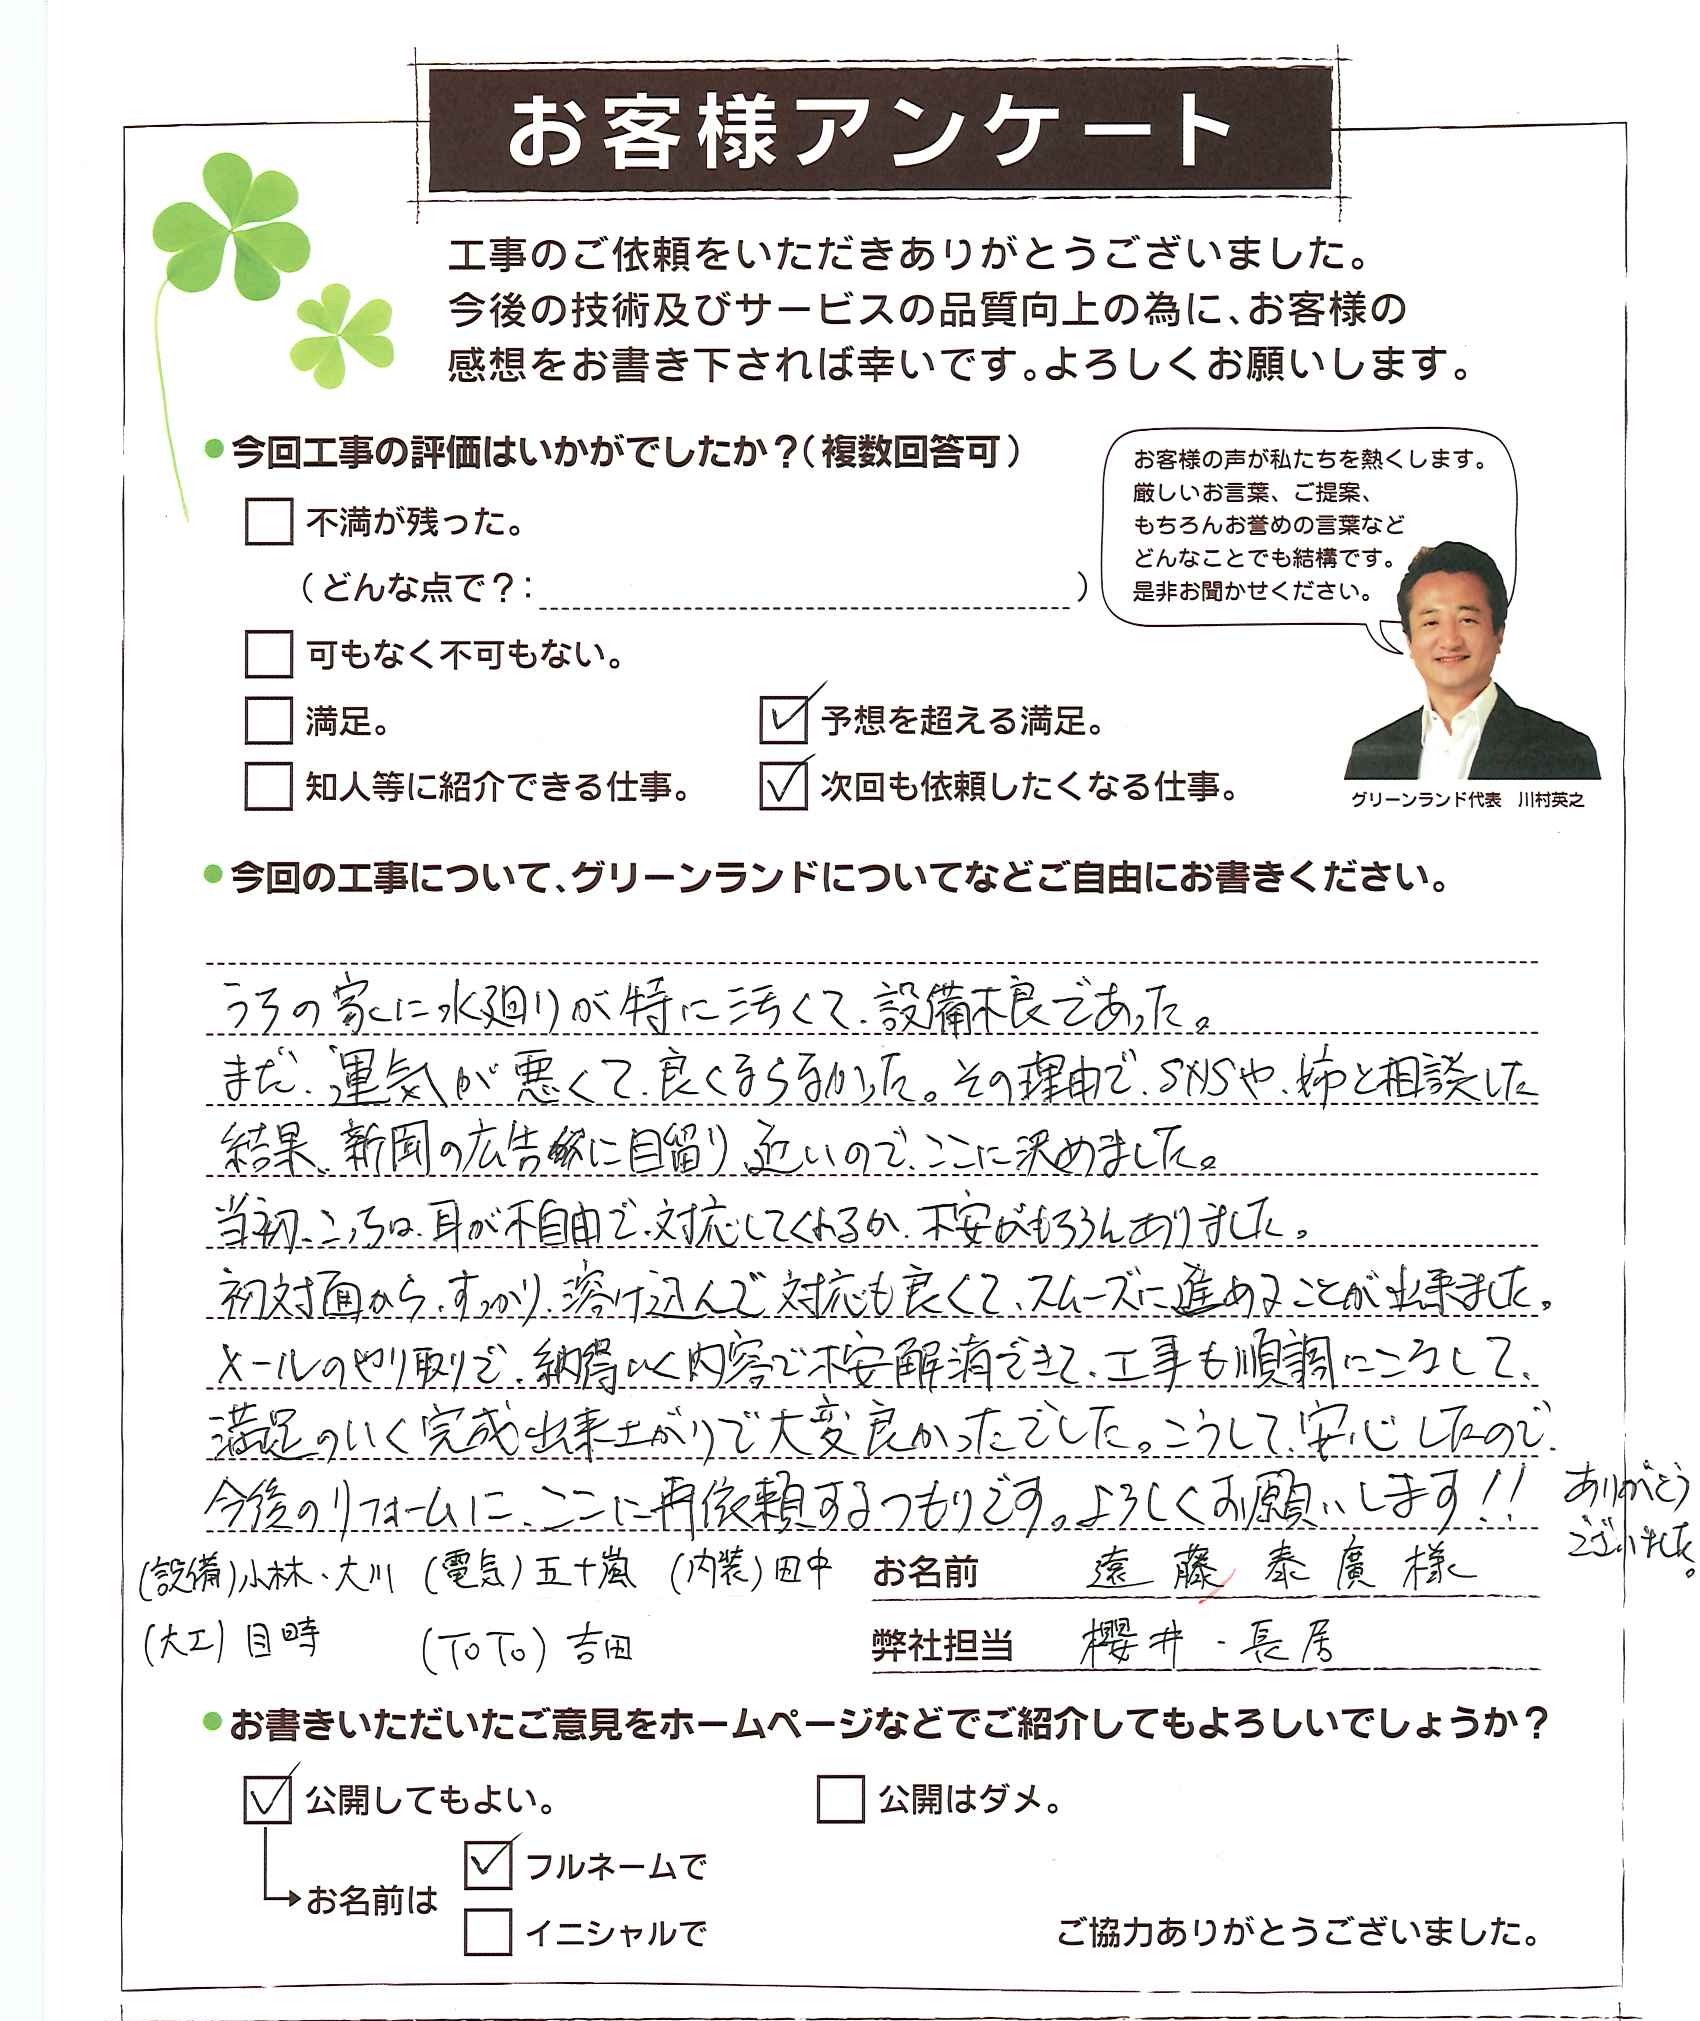 お客様アンケート
工事のご依頼をいただきありがとうございました。
今後の技術及びサービスの品質向上の為に、お客様の
感想をお書き下されば幸いです。よろしくお願いします。
●今回工事の評価はいかがでしたか?(複数回答可)
不満が残った。
(どんな点で?: )
可もなく不可もない。
満足。
✓ 予想を超える満足。
知人等に紹介できる仕事。
✓ 次回も依頼したくなる仕事。
お客様の声が私たちを熱くします。
厳しいお言葉、ご提案、
もちろんお誉めの言葉など
どんなことでも結構です。
是非お聞かせください。
グリーンランド代表 川村英之
●今回の工事について、グリーンランドについてなどご自由にお書きください。
うちの家に水廻りが特に汚くて、設備不良であった。
まだ、運気が悪くて、良くならなかった。その理由で、SNSや、姉と相談した
結果、新聞の広告に目留り、近いので、ここに決めました。
当初、こっちは、耳が不自由で、対応してくれるか、不安がもちろんありました。
初対面から、すっかり、溶け込んで対応も良くて、スムーズに進めることが出来ました。
メールのやり取りで、納得いく内容で不安解消できて、工事も順調にこなして、
満足のいく完成出来上がりで大変良かったでした。こうして、安心したので、
今後のリフォームに、ここに再依頼するつもりです。よろしくお願いします!!
ありがとう
ございました。
(設備)小林・大川 (電気)五十嵐 (内装)田中
(大工)目時 (TOTO)吉田
お名前 遠藤泰廣様
弊社担当 櫻井・長居
●お書きいただいたご意見をホームページなどでご紹介してもよろしいでしょうか?
✓ 公開してもよい。
公開はダメ。
お名前は
✓ フルネームで
イニシャルで
ご協力ありがとうございました。